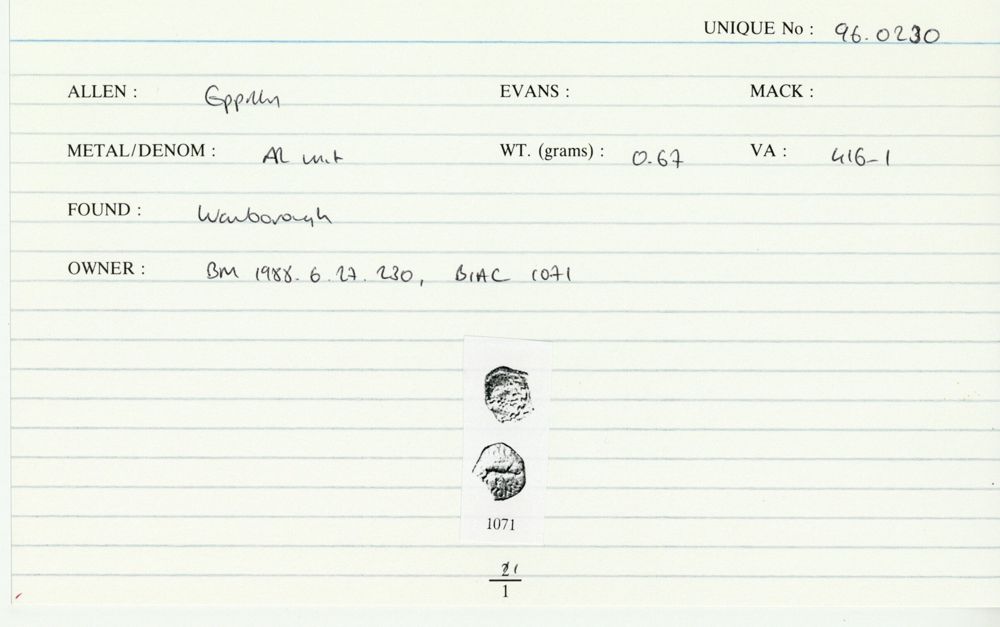 UNIQUE No : 96.0230
ALLEN : Eppillus EVANS : MACK :
METAL/DENOM : AR unit WT. (grams) : 0.67 VA : 416-1
FOUND : Wanborough
OWNER : BM 1988.6.27.230, BIAC 1071
1071
1